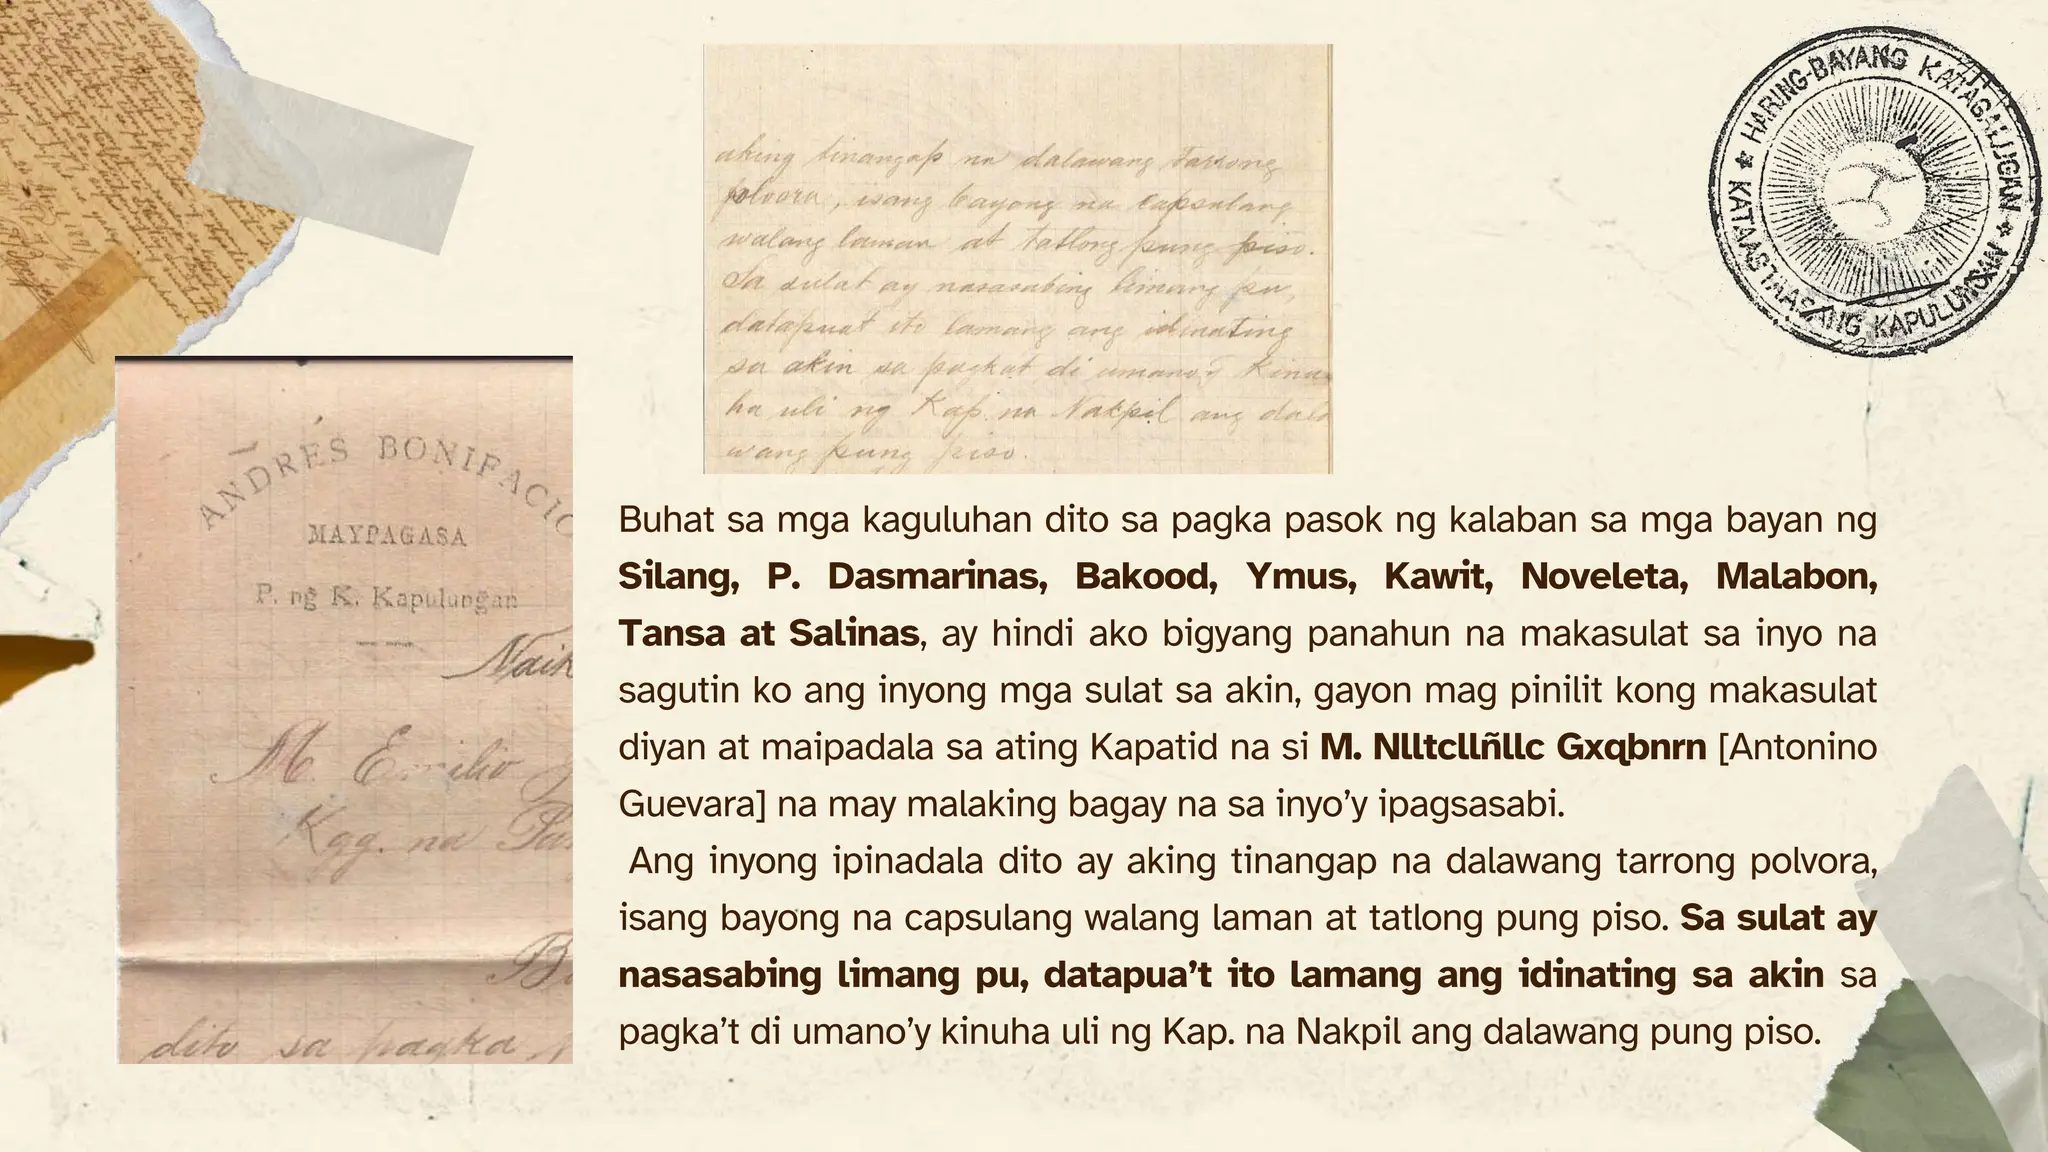 aking tinangap na dalawang tarrong
polvora, isang bayong na capsulang
walang laman at tatlong pung piso.
Sa sulat ay nasasabing limang pu,
datapuat ito lamang ang idinating
sa akin sa pagkat di umano'y kinu
ha uli ng Kap. na Nakpil ang dala
wang pung piso.
HARING-BAYANG KATAGALUGAN
KATAASTAASANG KAPULUNGAN
ANDRES BONIFACIO
MAYPAGASA
P. ng K. Kapulungan
Naik
M. Emilio J
Kgg. na Pan
Bu
dito sa pagka
Buhat sa mga kaguluhan dito sa pagka pasok ng kalaban sa mga bayan ng
Silang, P. Dasmarinas, Bakood, Ymus, Kawit, Noveleta, Malabon,
Tansa at Salinas, ay hindi ako bigyang panahun na makasulat sa inyo na
sagutin ko ang inyong mga sulat sa akin, gayon mag pinilit kong makasulat
diyan at maipadala sa ating Kapatid na si M. Nlltcllñllc Gxqbnrn [Antonino
Guevara] na may malaking bagay na sa inyo’y ipagsasabi.
Ang inyong ipinadala dito ay aking tinangap na dalawang tarrong polvora,
isang bayong na capsulang walang laman at tatlong pung piso. Sa sulat ay
nasasabing limang pu, datapua’t ito lamang ang idinating sa akin sa
pagka’t di umano’y kinuha uli ng Kap. na Nakpil ang dalawang pung piso.